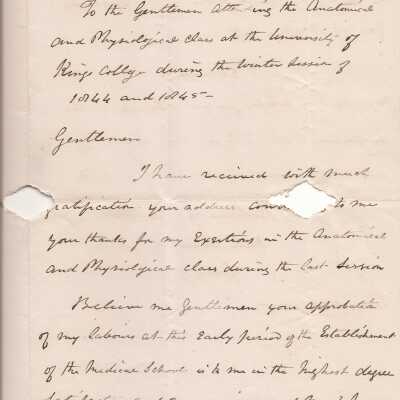 To the Gentlemen att ing the Anatomical
and Physiological class at the University of
Kings College during the Winter Session of
1844 and 1845 -
Gentlemen
I have received with much
gratification your address to me
your thanks for my Exertions in the Anatomical
and Physiological class during the last Session
Believe me Gentlemen your approbation
of my labours at this Early period of the Establishment
of the Medical School is to me in the highest degree